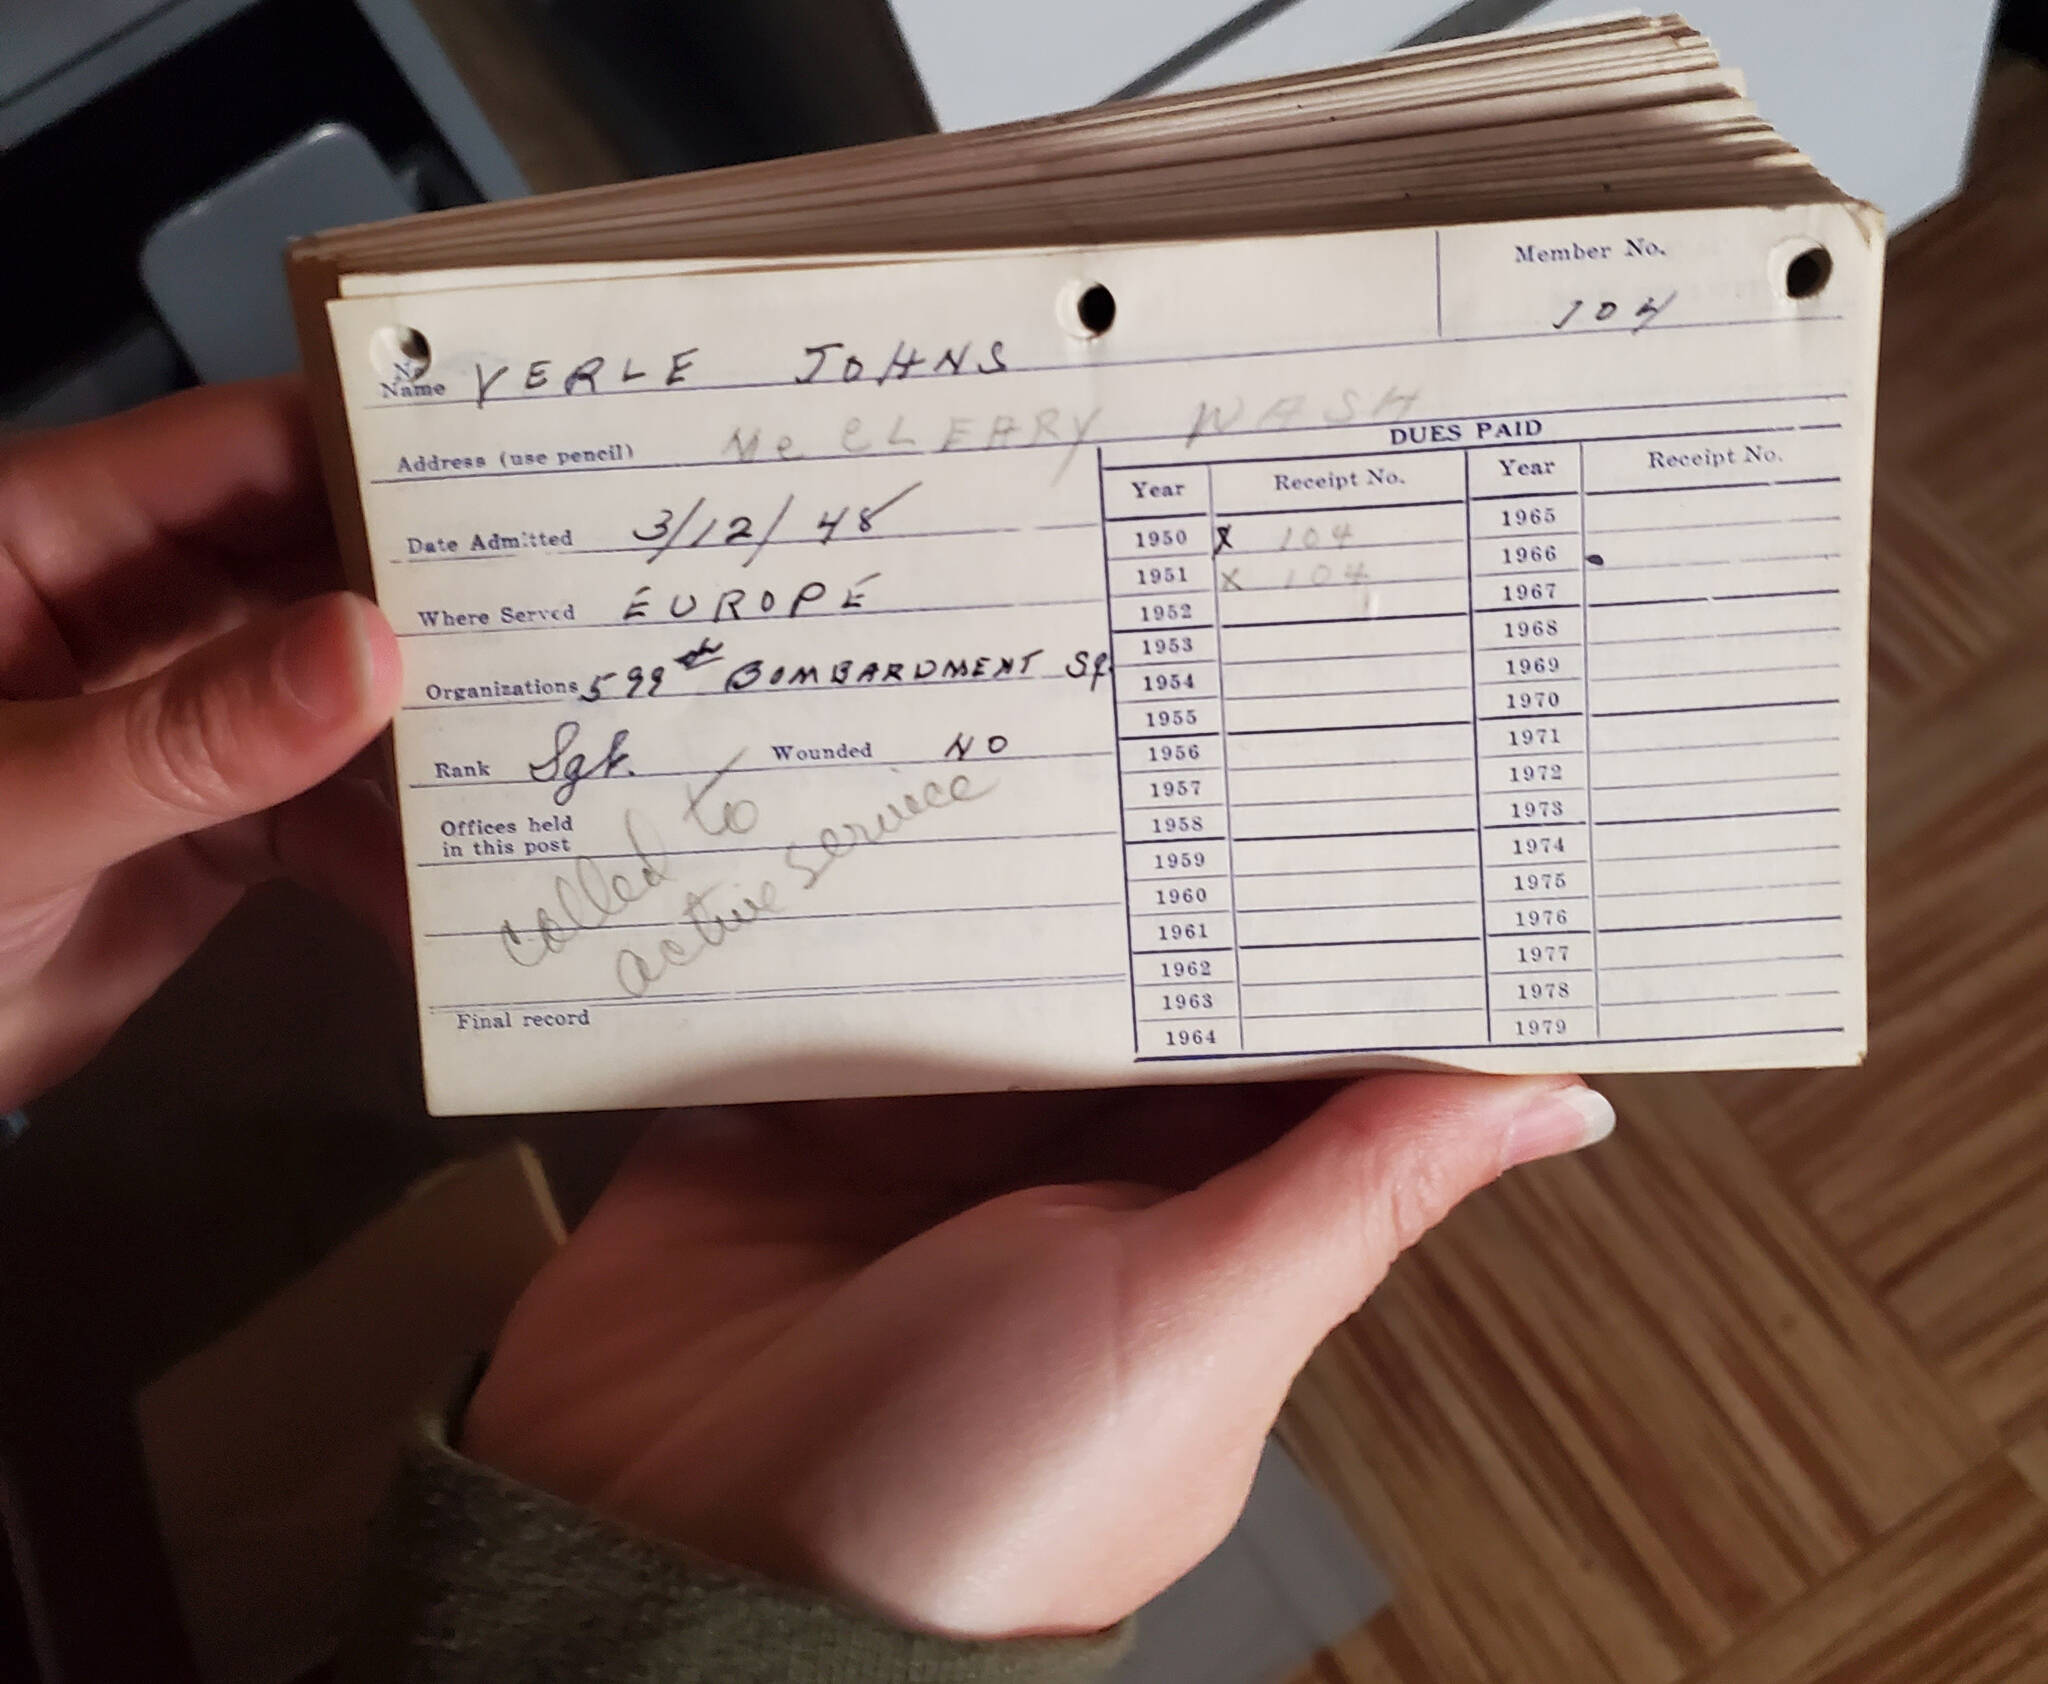 Member No.
104
No
Name VERLE JOHNS
Address (use pencil) Mc CLEARY WASH
DUES PAID
Year Receipt No. Year Receipt No.
Date Admitted 3/12/48
Where Served EUROPE
Organizations 599th BOMBARDMENT Sq.
Rank Sgt. Wounded NO
Offices held
in this post
called to
active service
Final record
1950 X 104 1965
1951 X 104 1966
1952 1967
1953 1968
1954 1969
1955 1970
1956 1971
1957 1972
1958 1973
1959 1974
1960 1975
1961 1976
1962 1977
1963 1978
1964 1979